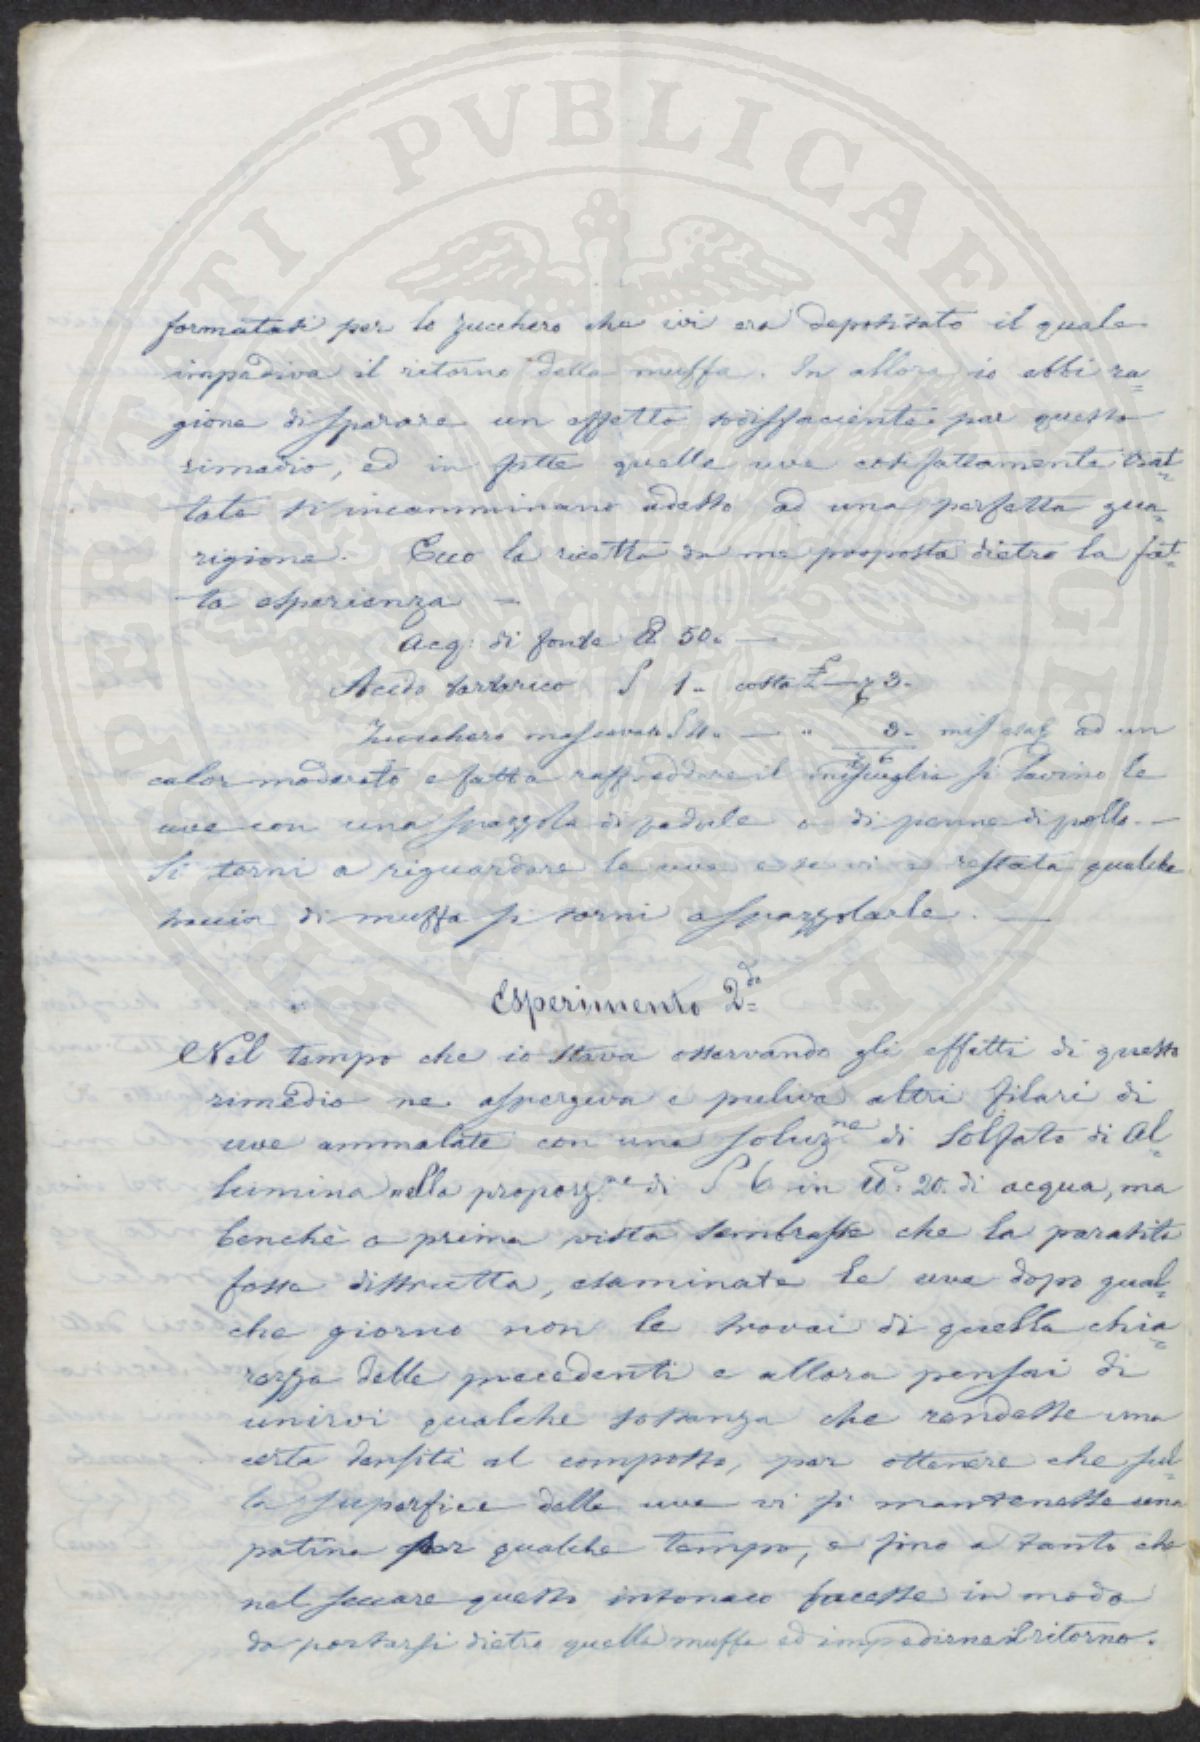 formatasi per lo zucchero che ivi era depositato il quale
impediva il ritorno della muffa. In allora io ebbi ra=
gione di sperare un effetto sodisfaciente per questo
rimedio, ed in fatte quelle uve cosifattamente trat=
tate s'incamminano adesso ad una perfetta gua=
rigione. Ecco la ricetta da me proposta dietro la fat=
ta esperienza —
Acq: di fonte 50. —
Acido tartarico 1. costa 3.
Zucchero mascavato — " 3. ad un
calor moderato e fatta raffreddare il miscuglio si lavino le
uve con una spazzola di padule o di penne di pollo. —
Si torni a riguardare le uve e se vi è restata qualche
traccia di muffa si torni a spazzolarle. —
Esperimento 2.do
Nel tempo che io stava osservando gli effetti di questo
rimedio ne aspergeva e puliva altri filari di
uve ammalate con una soluz.ne di Solfato di Al=
lumina nella proporz.ne di 6 in 20. di acqua, ma
benchè a prima vista sembrasse che la parasita
fosse distrutta, esaminate le uve dopo qual=
che giorno non le trovai di quella chia=
rezza delle precedenti e allora pensai di
unirvi qualche sostanza che rendesse una
certa densità al composto, per ottenere che sul=
la superfice delle uve vi si mantenesse una
patina per qualche tempo, e fino a tanto che
nel seccare questo intonaco facesse in modo
da portarsi dietro quella muffa ed impedirne il ritorno.
PERITI PVBLICAE